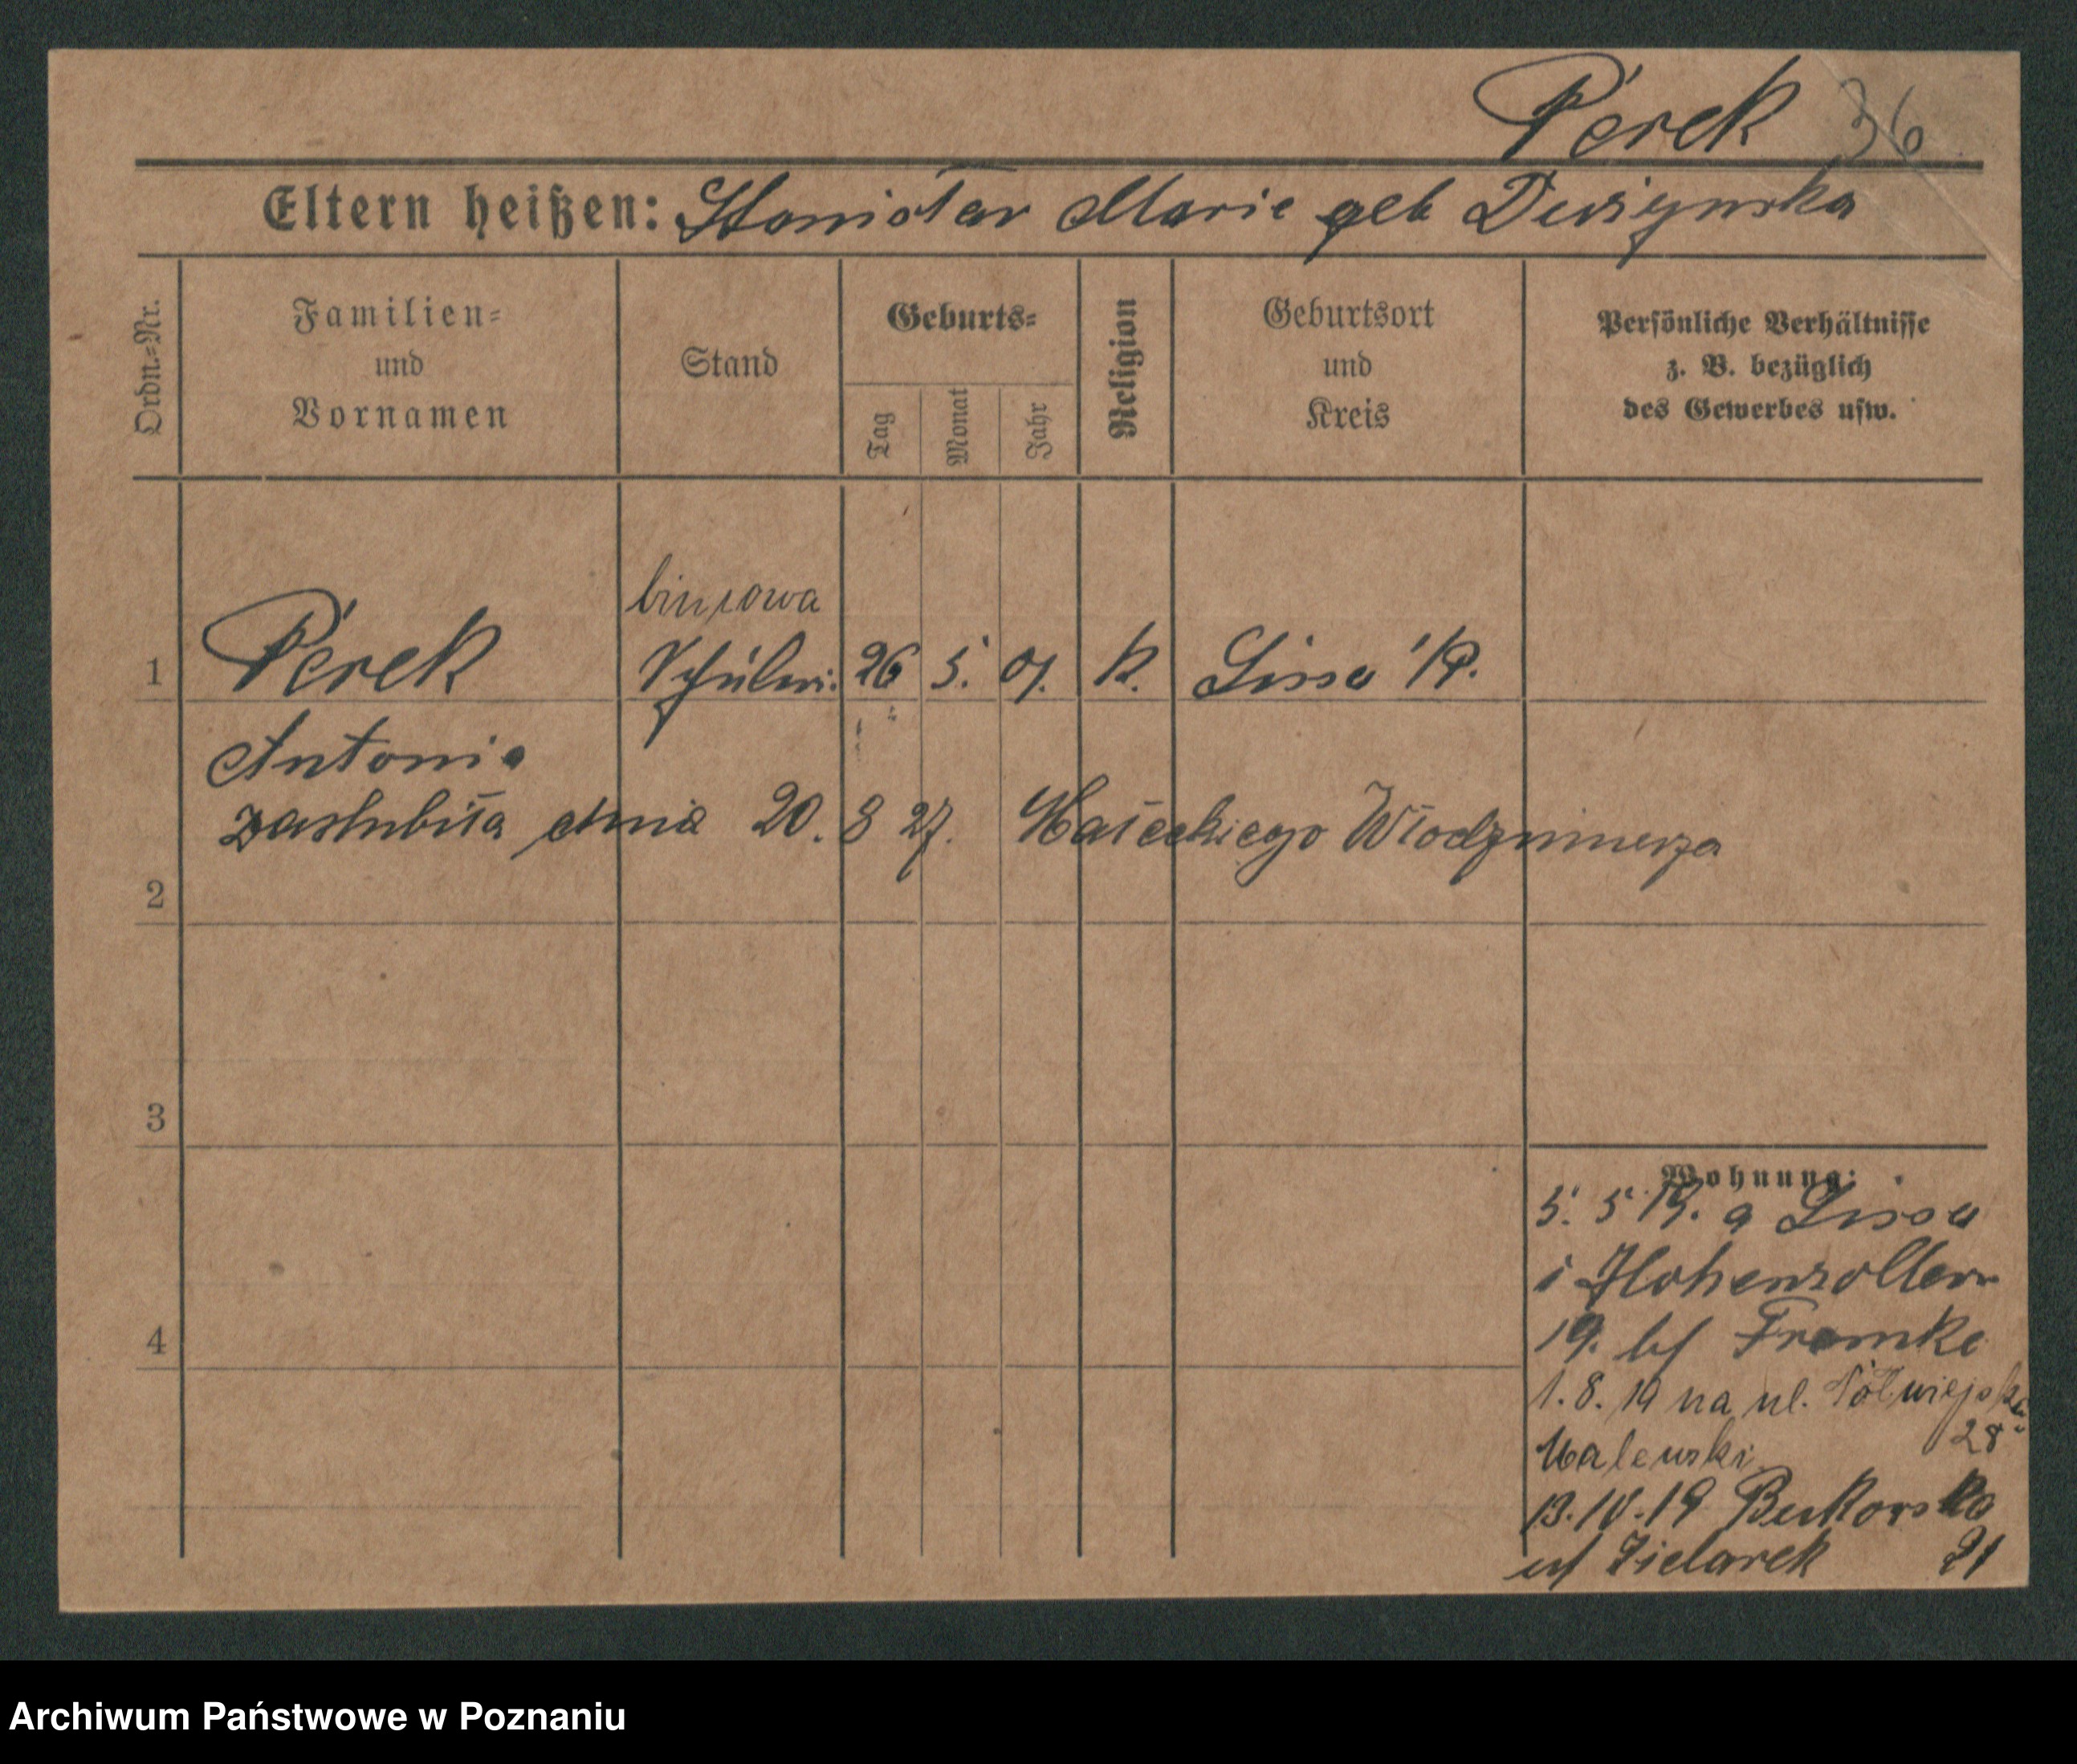 Perek 36
Eltern heißen: Stanislav Marie geb
Ordn.=Nr.
Familien=
und
Vornamen
Stand
Geburts=
Tag
Monat
Jahr
Religion
Geburtsort
und
Kreis
Persönliche Verhältnisse
z. B. bezüglich
des Gewerbes usw.
biurowa
1 Perek Schüleri. 26 5. 01. K. Lissa /P.
Antonie
zaslubiła dnia 20. 8 27. Hałeckiego Włodzimierza
2
3
4
Wohnung:
5. 5 19. a Lissa
i Hohenzollern
19. bf Franke
1.8.19 na ul. Półwiejska
28
Walewski
13.10.19 Bukowska
bf Zielarek 21
Archiwum Państwowe w Poznaniu